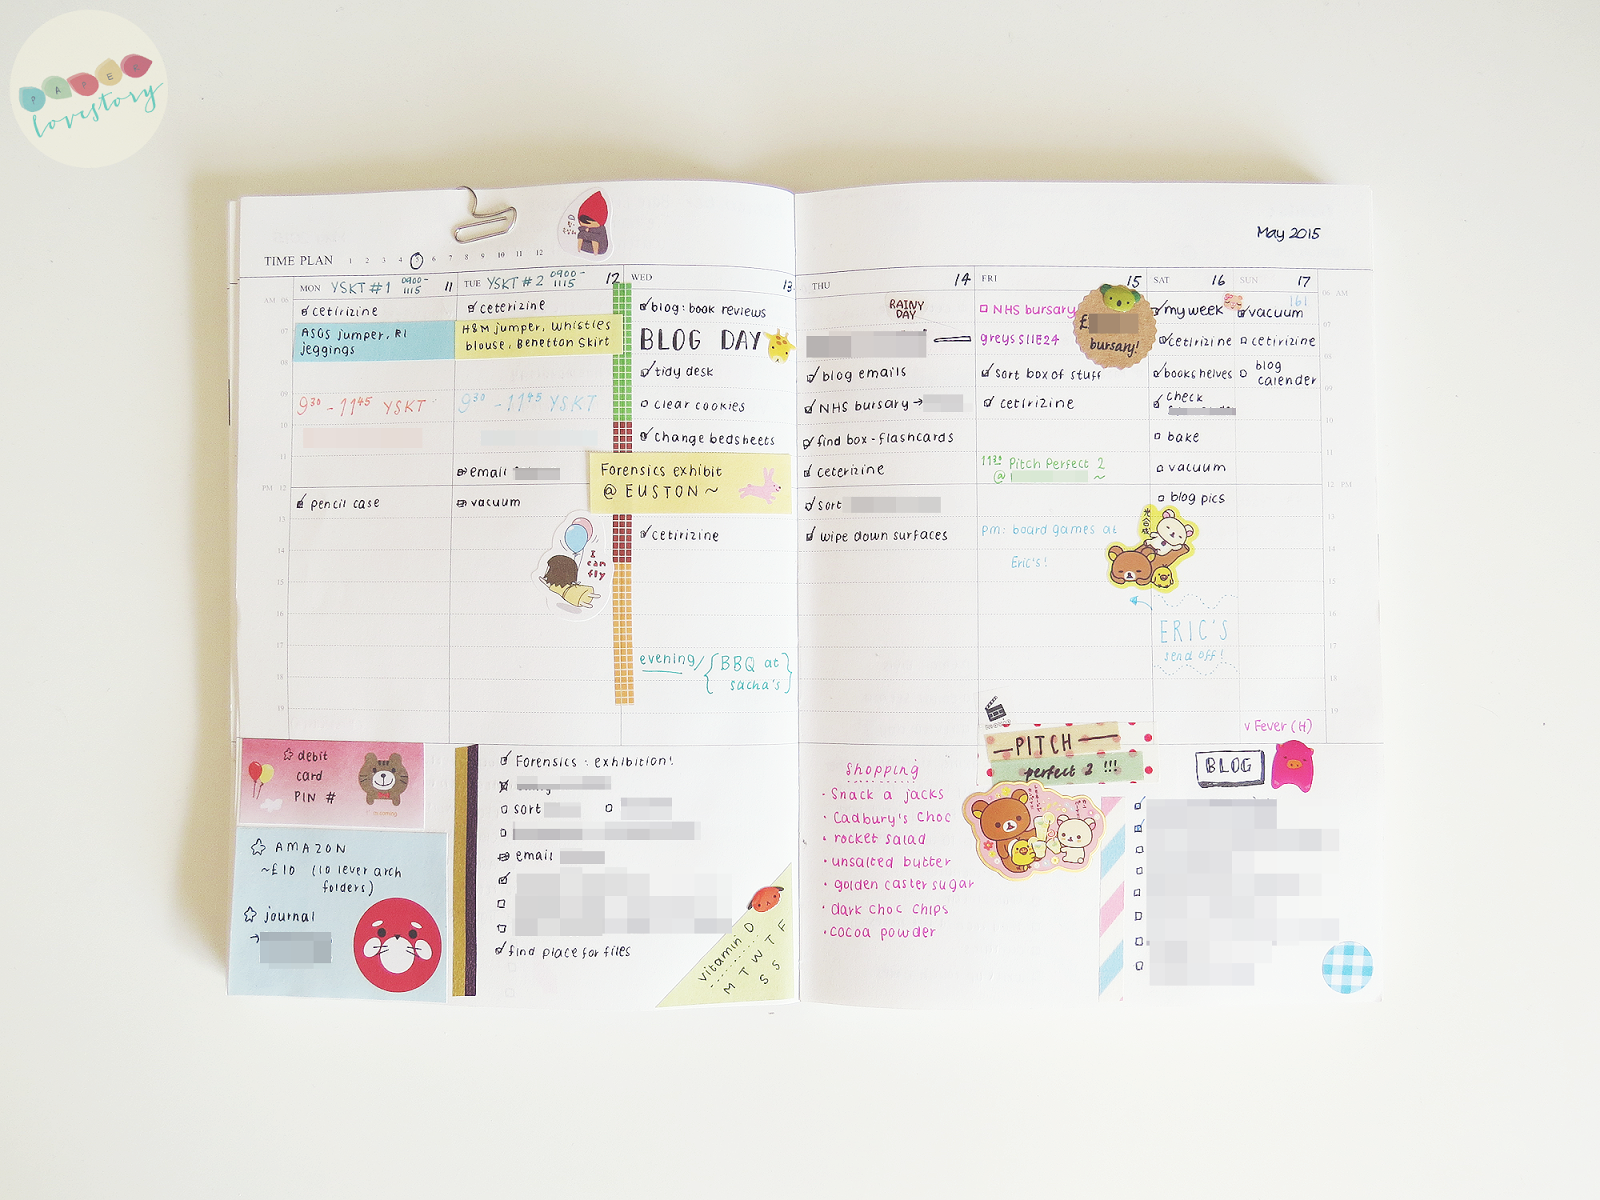 PAPER
lovestory
May 2015
TIME PLAN 1 2 3 4 5 6 7 8 9 10 11 12
MON YSKT #1 0900 - 1115 11
ceterizine
ASOS jumper, RI
jeggings
9³⁰ - 11⁴⁵ YSKT
pencil case
TUE YSKT #2 0900 - 1115 12
ceterizine
H&M jumper, Whistles
blouse, Benetton Skirt
9³⁰ - 11⁴⁵ YSKT
email
vacuum
I
can
fly
WED 13
blog: book reviews
BLOG DAY
tidy desk
clear cookies
change bedsheets
Forensics exhibit
@ EUSTON ~
cetirizine
evening/ {BBQ at
sacha's}
THU 14
RAINY
DAY
blog emails
NHS bursary →
find box - flashcards
ceterizine
sort
wipe down surfaces
FRI 15
NHS bursary
£
bursary!
greys S11E24
sort box of stuff
cetirizine
11³⁰ Pitch Perfect 2
@ ~
pm: board games at
Eric's!
SAT 16
my week
cetirizine
bookshelves
check
bake
vacuum
blog pics
ERIC'S
send off!
SUN 17
161
vacuum
cetirizine
blog
calender
v Fever (H)
AM 06
07
08
09
10
11
PM 12
13
14
15
16
17
18
19
debit
card
PIN #
AMAZON
~£10 (10 lever arch
folders)
journal
→
Forensics : exhibition!
sort
email
find place for files
vitamin D
M T W T F
S S
Shopping
· Snack a jacks
· Cadbury's Choc
· rocket salad
· unsalted butter
· golden caster sugar
· dark choc chips
· cocoa powder
— PITCH —
perfect 2 !!!
BLOG